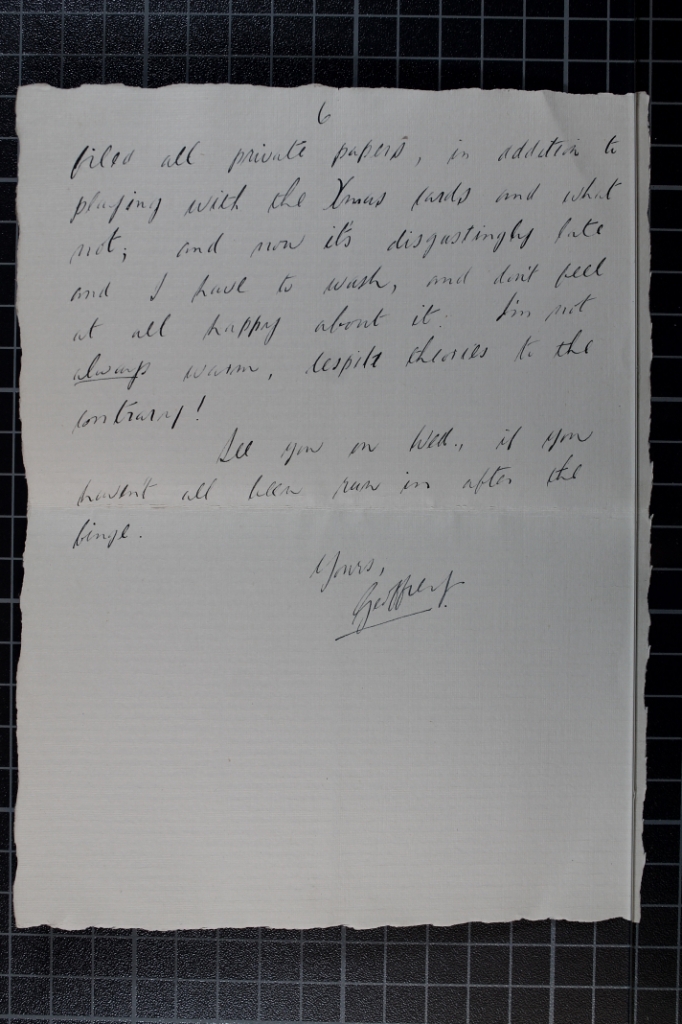 6
filed all private papers, in addition to
playing with the Xmas cards and what
not; and now it's disgustingly late
and I have to wash, and don't feel
at all happy about it. I'm not
always warm, despite theories to the
contrary!
See you on Wed., if you
haven't all been run in after the
binge.
Yours,
Geoffrey.